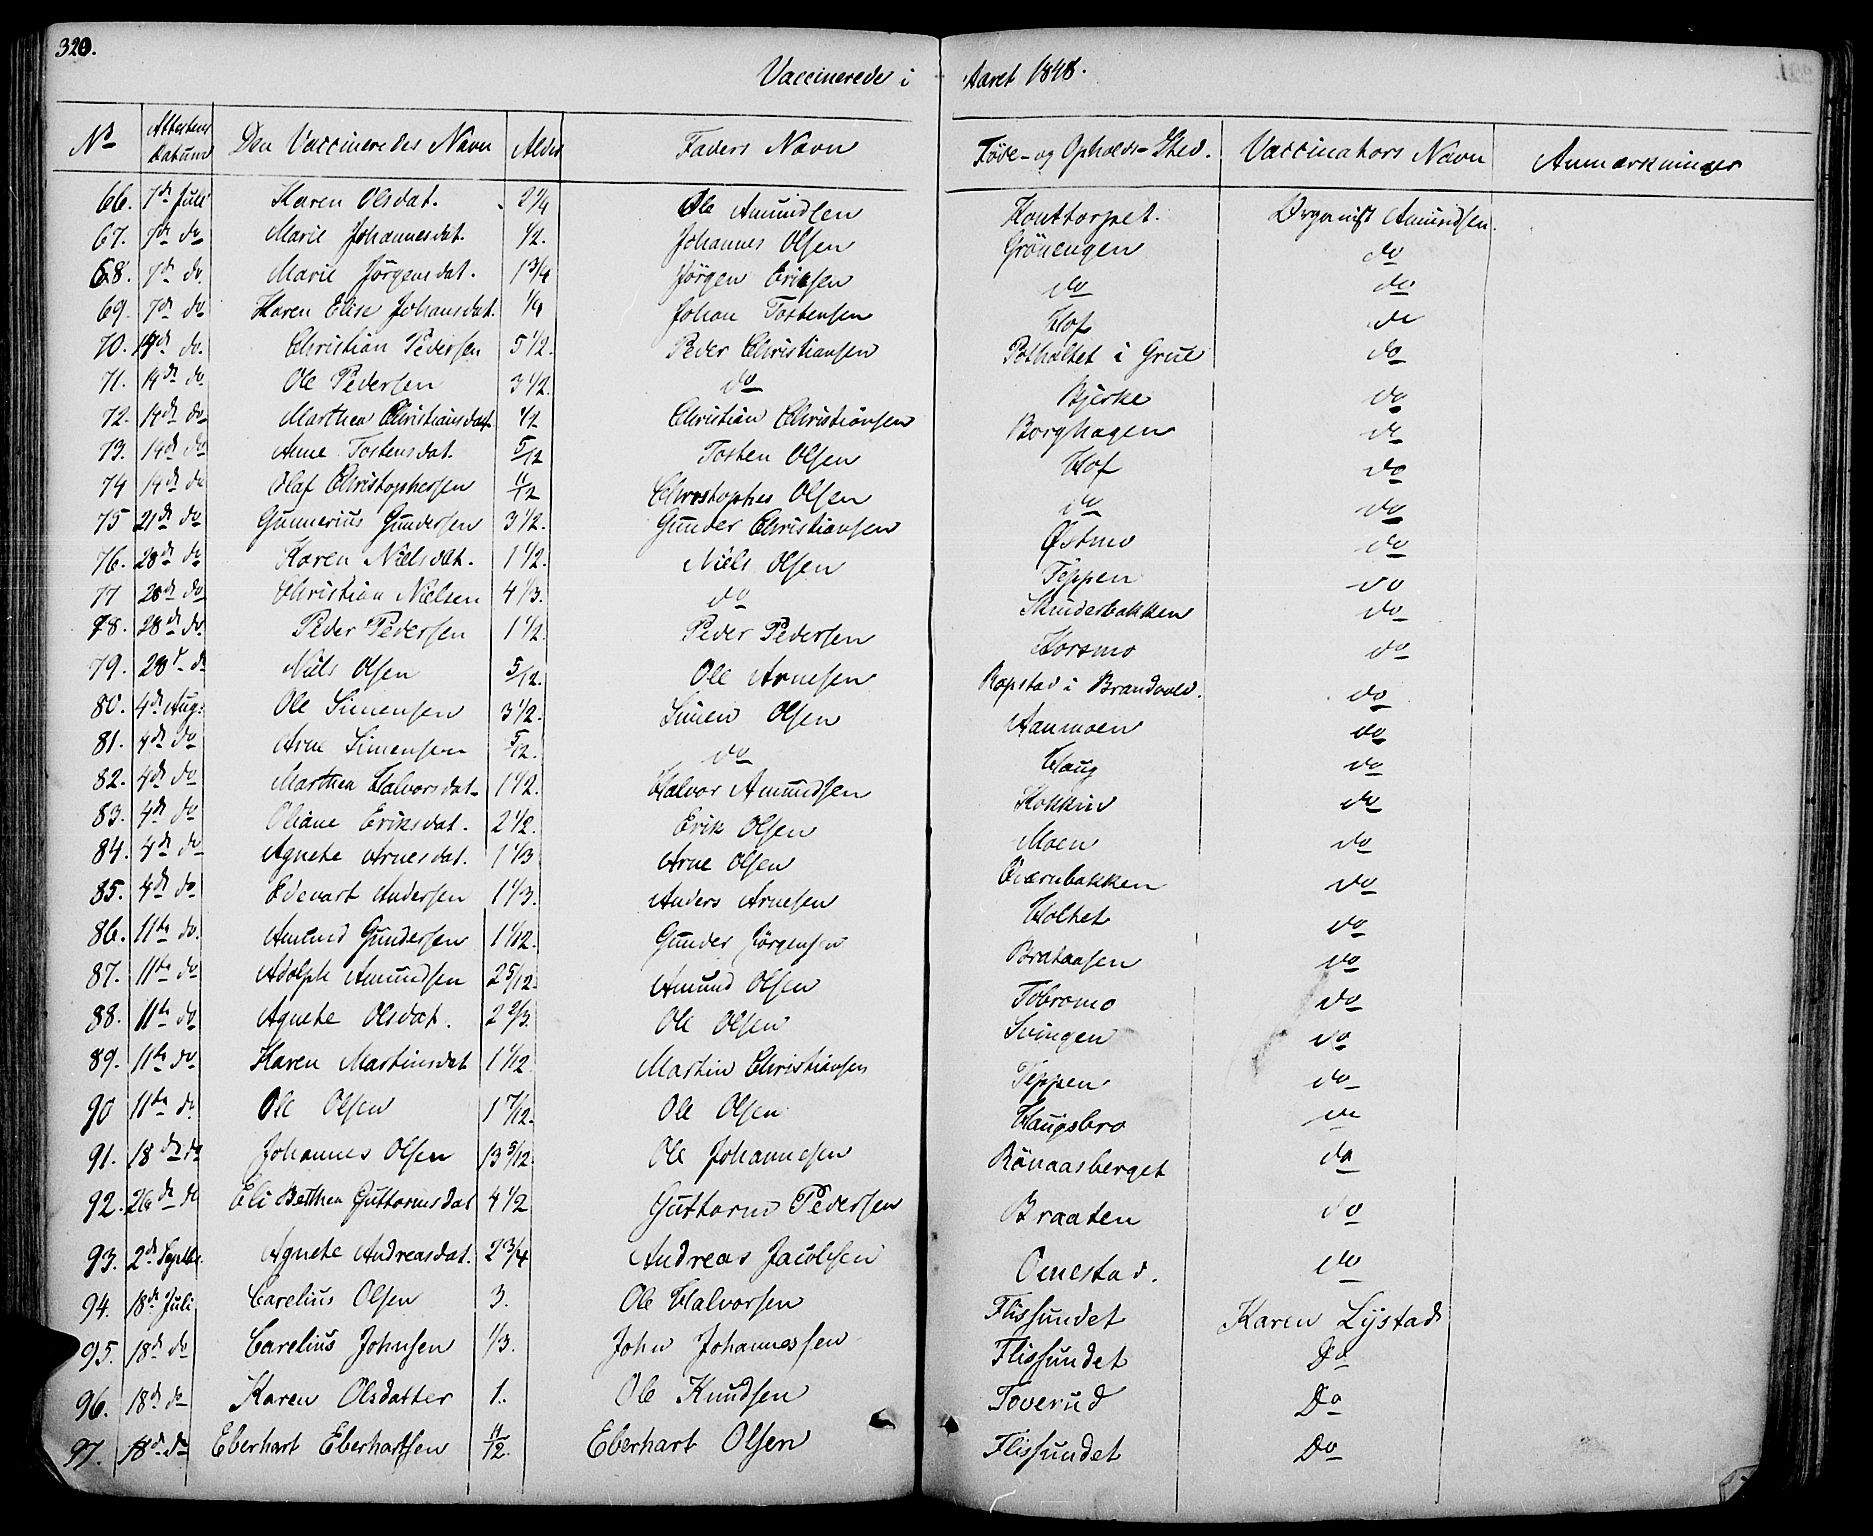 320.
Vaccinerede i Aaret 1848.
No Attestens Datum Den Vaccineredes Navn Alder Faders Navn Föde- og Opholds-Sted. Vaccinators Navn Anmærkninger
66. 7de Juli Karen Olsdat. 2 1/4 Ole Amundsen Kouttorpet. Organist Amundsen.
67. 7de do Marie Johannesdat. 1/2. Johannes Olsen Grönengen do
68. 7de do. Marie Jörgensdat. 1 3/4 Jörgen Eriksen do do
69. 7de do Karen Elise Johansdat. 1/4 Johan Tostensen Hof do
70. 14de do. Christian Pedersen 5 1/2. Peder Christiansen Potholtet i Grue do
71. 14de do Ole Pedersen 3 1/2. do Bjerke do
72. 14de do Marthea Christiansdat 1/2 Christian Christiansen Borghagen do
73. 14de do Anne Tostensdat. 5/12 Tosten Olsen Hof do
74 14de do Olaf Christophersen 11/12 Christopher Olsen do do
75 21de do Gunnerius Gundersen 3 1/2. Gunder Christiansen Østmo do
76. 28de do Karen Nielsdat. 1 1/2. Niels Olsen Teppen do
77 28de do Christian Nielsen 4 1/3. do Skruderbakken do
78. 28de do Peder Pedersen 1 1/2. Peder Pedersen Korsmo do
79. 28de do Niels Olsen 5/12. Ole Arnesen Rapstad i Brandvold. do
80. 4de Aug: Ole Simensen 3 1/2. Simen Olsen Aanmoen do
81. 4de do Arne Simensen 5/12. do Haug do
82. 4de do Marthea Halvorsdat. 1 1/2. Halvor Amundsen Kokkin do
83. 4de do Oliane Eriksdat. 2 1/2. Erik Olsen Moen do
84. 4de do Agnete Arnesdat. 1 1/3 Arne Olsen Qværnbakken do
85. 4de do Edevart Andersen 1 1/3. Anders Arnesen Holtet do
86. 11te do. Amund Gundersen 1 1/12. Gunder Jörgensen Brataasen do
87. 11te do Adolph Amundsen 2 5/12. Amund Olsen Tobromo do
88. 11te do Agnete Olsdat. 2 2/3. Ole Olsen Svingen do
89. 11te do Karen Martinsdat 1 1/12. Martin Christiansen Teppen do
90 11te do Ole Olsen 1 7/12. Ole Olsen Haugsbro do
91. 18de do Johannes Olsen 13 5/12 Ole Johannesen Rönaasberget do
92. 26de do Eli Bethea Guttormsdat 4 1/2 Guttorm Pedersen Braaten do
93. 2de Septbr. Agnete Andreasdat. 2 3/4 Andreas Jacobsen Omestad. do
94. 18de Juli Carelius Olsen 3. Ole Halvorsen Flissundet Karen Lystad
95. 18de do Carelius Johnsen 1/3. John Johannessen Flissundet Do
96. 18de do Karen Olsdatter 1. Ole Knudsen Toverud Do
97. 18de do Eberhart Eberhartsen 11/12. Eberhart Olsen Flissundet Do